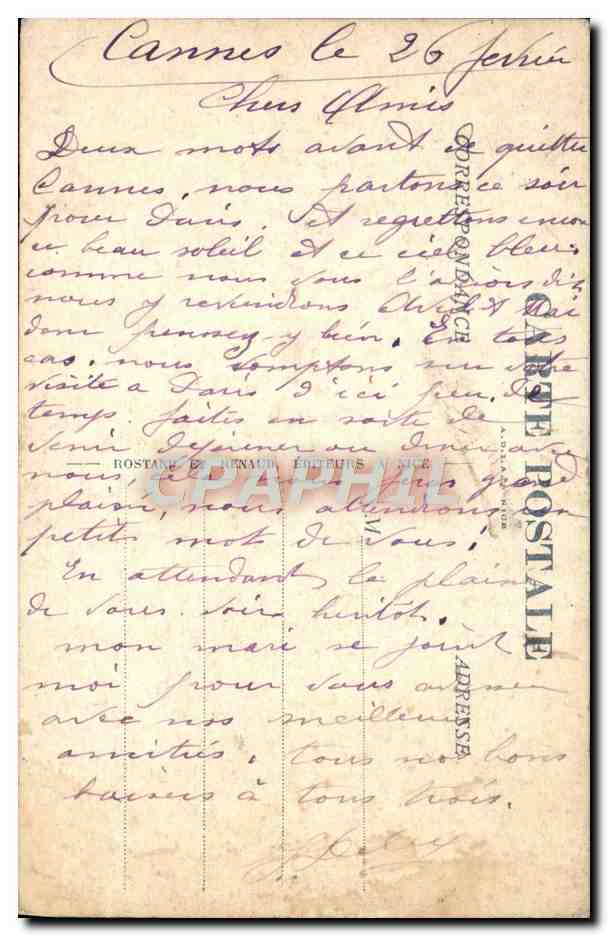 Cannes le 26 février
Chers Amis
Deux mots avant de quitter
Cannes, nous partons ce soir
pour Paris. et regrettons encore
ce beau soleil et ce ciel bleu
comme nous vous l'avions dit
nous y reviendrons Avril et Mai
donc pensez-y bien. En tous
cas, nous comptons sur votre
visite à Paris d'ici peu de
temps. faites en sorte de
venir dejeuner ou diner avec
nous, cela nous fera grand
plaisir, nous attendrons un
petit mot de vous.
En attendant le plaisir
de vous voir bientôt.
mon mari se joint
moi pour vous
avec nos meilleures
amitiés, tous nos bons
baisers à tous trois.
CORRESPONDANCE
CARTE POSTALE
ADRESSE
M
ROSTAND ET RENAUD, ÉDITEURS A NICE
CPAPHIL